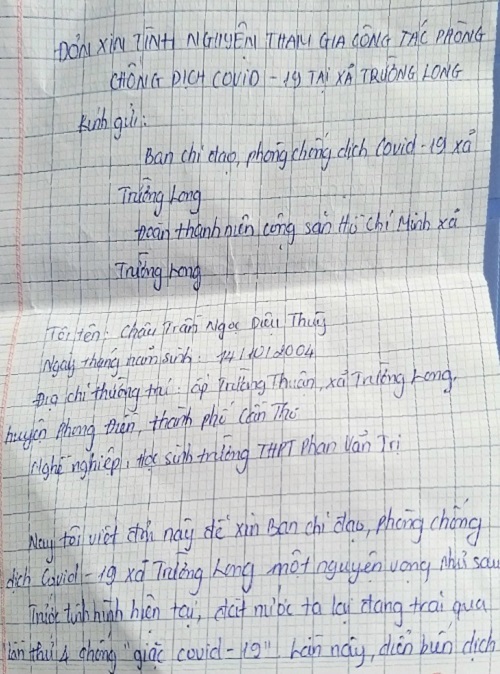 ĐƠN XIN TÌNH NGUYỆN THAM GIA CÔNG TÁC PHÒNG
CHỐNG DỊCH COVID - 19 TẠI XÃ TRƯỜNG LONG
Kính gửi:
Ban chỉ đạo, phòng chống dịch Covid-19 xã
Trường Long
Đoàn thanh niên cộng sản Hồ Chí Minh xã
Trường Long
Tôi tên: Châu Trần Ngọc Diệu Thúy
Ngày tháng năm sinh: 14/10/2004
Địa chỉ thường trú: ấp Trường Thuận, xã Trường Long,
huyện Phong Điền, thành phố Cần Thơ
Nghề nghiệp: Học sinh trường THPT Phan Văn Trị
Nay tôi viết đơn này để xin Ban chỉ đạo, phòng chống
dịch Covid-19 xã Trường Long một nguyện vọng như sau
Trước tình hình hiện tại, đất nước ta lại đang trải qua
lần thứ 4 chống "giặc covid-19". Lần này, diễn biến dịch